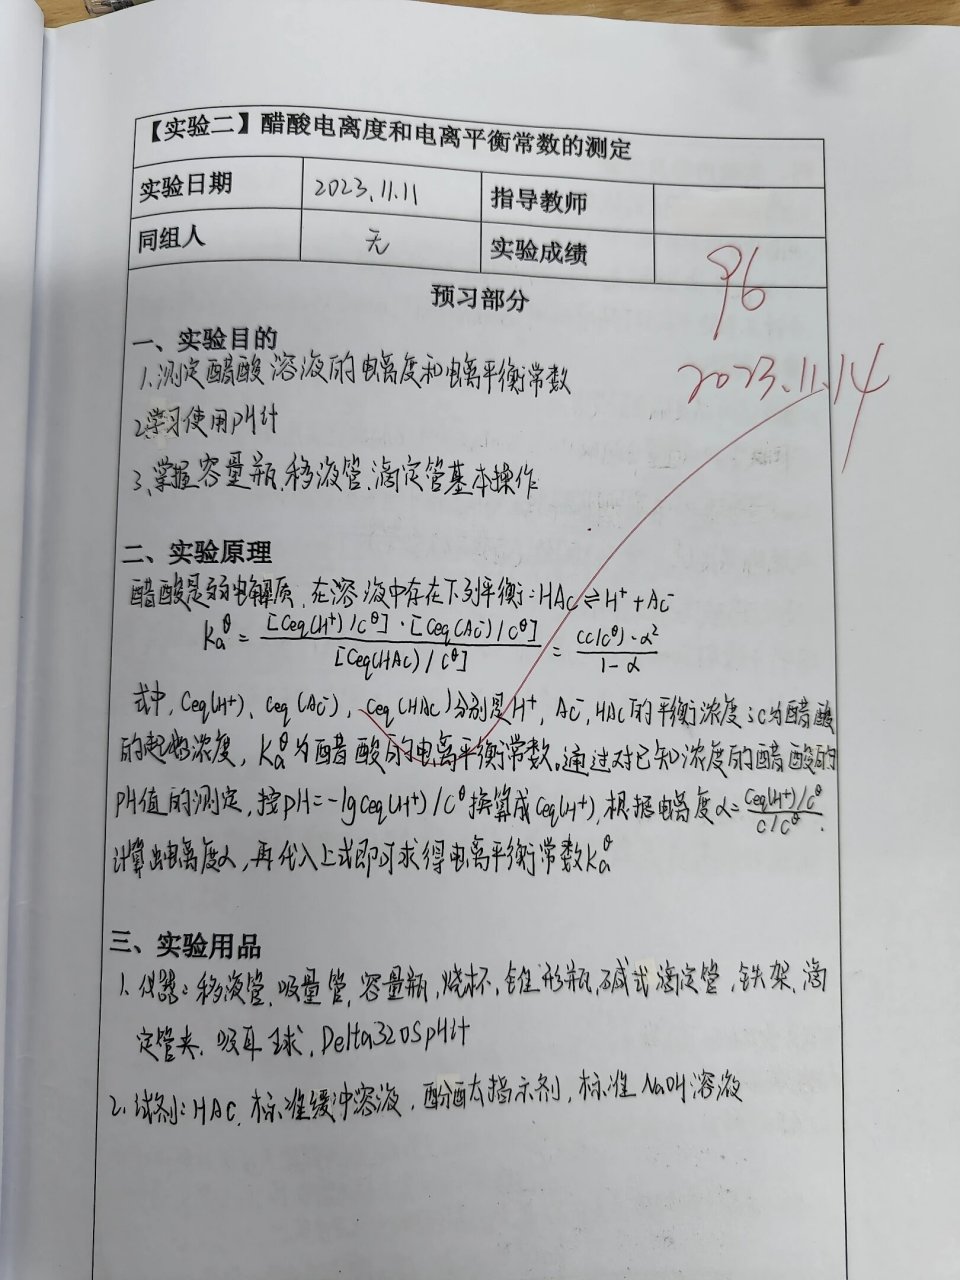 【实验二】醋酸电离度和电离平衡常数的测定
实验日期 2023.11.11 指导教师
同组人 无 实验成绩 96
预习部分
一、实验目的
2023.11.14
1.测定醋酸溶液的电离度和电离平衡常数
2.学习使用pH计
3.掌握容量瓶、移液管、滴定管基本操作
二、实验原理
醋酸是弱电解质,在溶液中存在下列平衡:HAc⇌H⁺+Ac⁻
Kₐ^θ = [Ceq(H⁺)/C^θ]·[Ceq(Ac⁻)/C^θ] / [Ceq(HAc)/C^θ] = (c/c^θ)·α² / 1-α
式中,Ceq(H⁺)、Ceq(Ac⁻)、Ceq(HAc)分别是H⁺,Ac⁻,HAc的平衡浓度;c为醋酸
的起始浓度,Kₐ^θ为醋酸的电离平衡常数。通过对已知浓度的醋酸的
pH值的测定,按pH=-lgCeq(H⁺)/C^θ换算成Ceq(H⁺),根据电离度α=Ceq(H⁺)/C^θ / C/C^θ.
计算出电离度α,再代入上式即可求得电离平衡常数Kₐ^θ
三、实验用品
1、仪器:移液管,吸量管,容量瓶,烧杯,锥形瓶,碱式滴定管,铁架、滴
定管夹、吸耳球,Delta320SpH计
2、试剂:HAC,标准缓冲溶液,酚酞指示剂,标准NaOH溶液